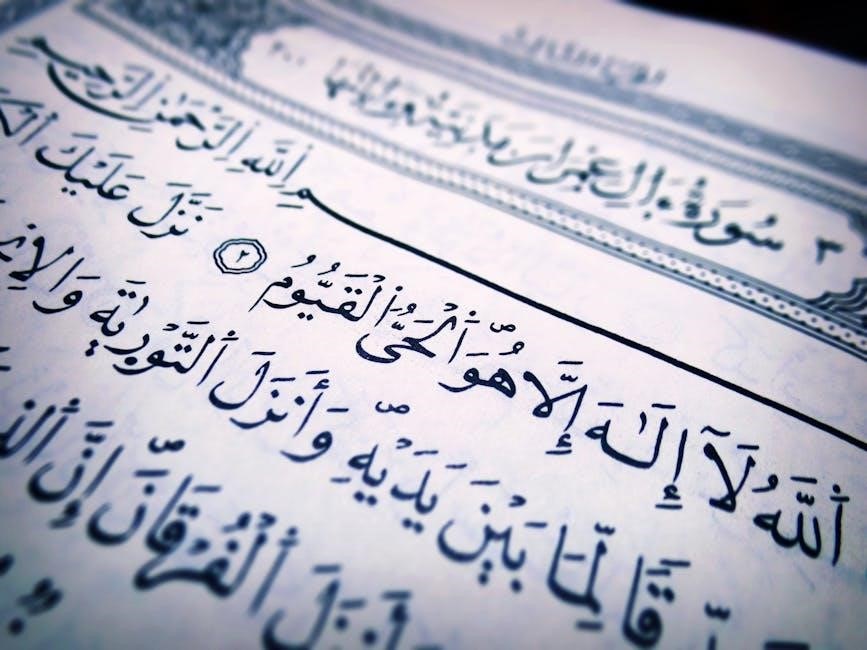 ٣ سُورَةُ اٰلِ عِمْرَانَ مَدَنِيَّةٌ ٢٠٠
بِسْمِ اللّٰهِ الرَّحْمٰنِ الرَّحِيمِ
أَللّٰهُ لَآ إِلٰهَ إِلَّا هُوَ ٱلْحَىُّ ٱلْقَيُّومُ ٢ نَزَّلَ عَلَيْكَ
قًا لِّمَا بَيْنَ يَدَيْهِ وَأَنزَلَ ٱلتَّوْرٰىةَ وَالْإِنْ
وَأَنزَلَ ٱلْفُرْقَانَ إِنَّ ٱلَّذِ